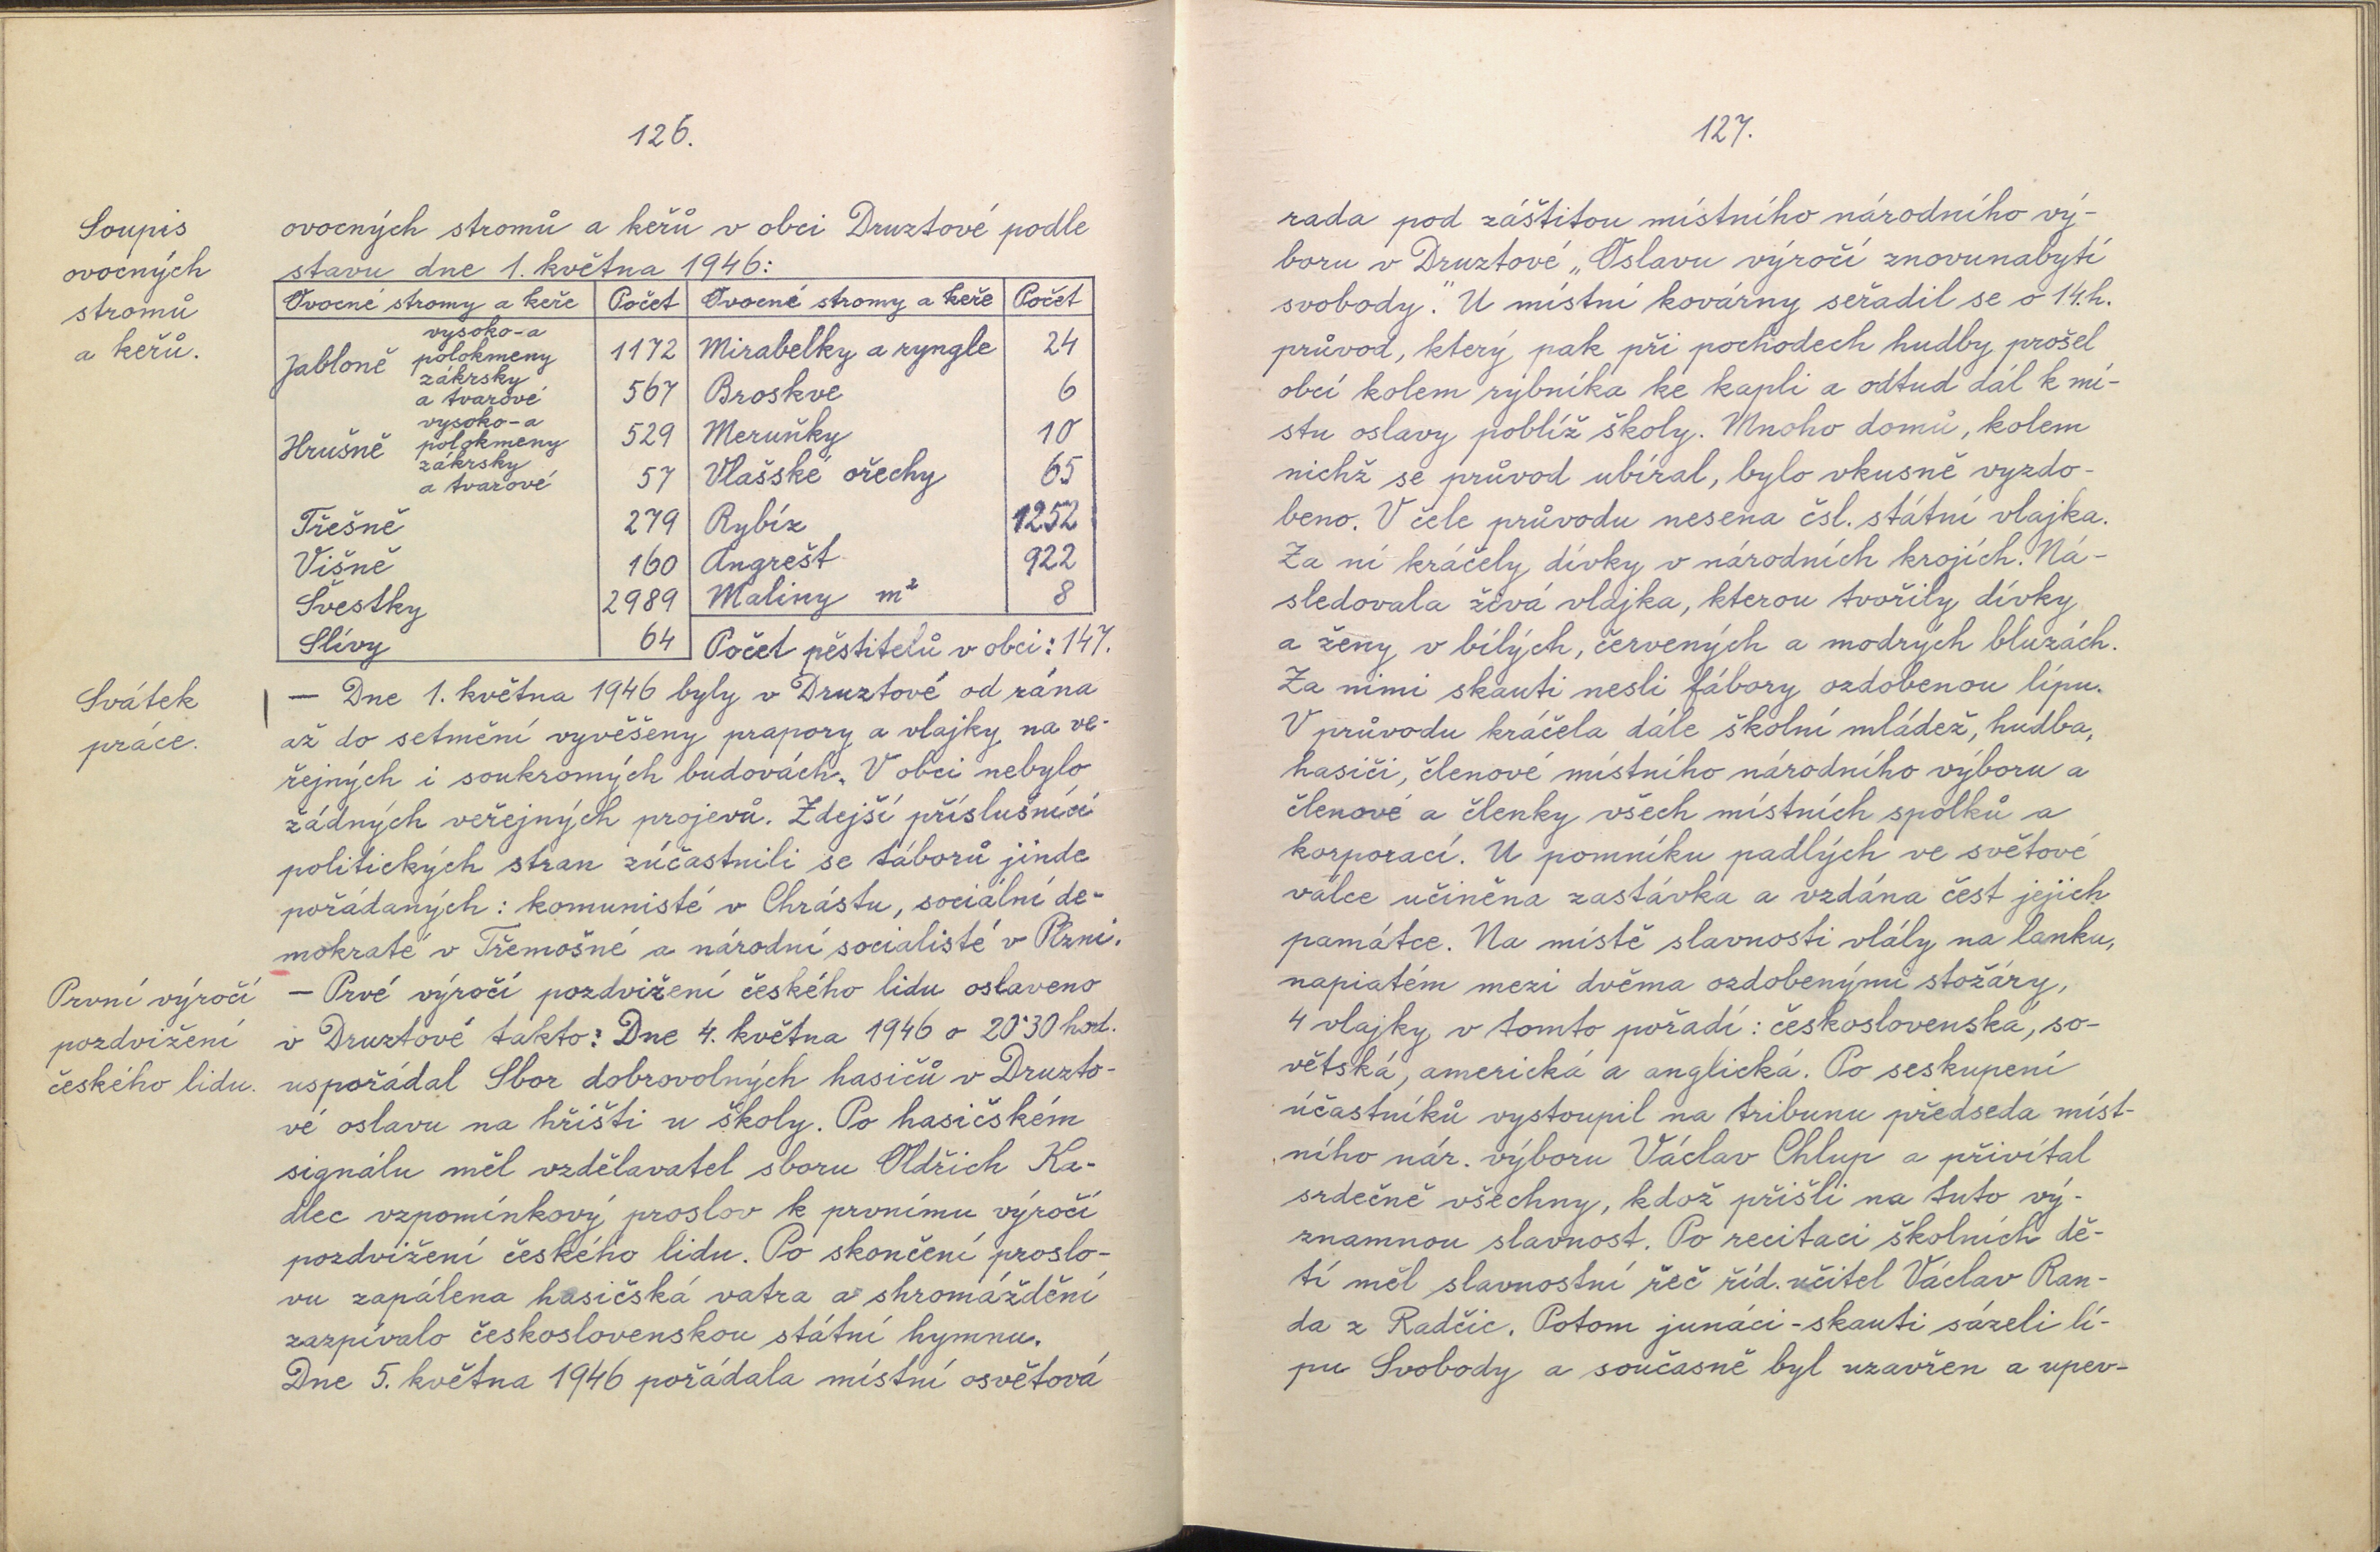 126.
Soupis
ovocných
stromů
a keřů.
ovocných stromů a keřů v obci Druztové podle
stavu dne 1. května 1946:
Ovocné stromy a keře | Počet | Ovocné stromy a keře | Počet
Jabloně vysoko-a polokmeny | 1172 | Mirabelky a ryngle | 24
zákrsky a tvarové | 567 | Broskve | 6
Hrušně vysoko-a polokmeny | 529 | Meruňky | 10
zákrsky a tvarové | 57 | Vlašské ořechy | 65
Třešně | 279 | Rybíz | 1252
Višně | 160 | Angrešt | 922
Švestky | 2989 | Maliny m² | 8
Slívy | 64 | Počet pěstitelů v obci: 147.
Svátek
práce.
— Dne 1. května 1946 byly v Druztové od rána
až do setmění vyvěšeny prapory a vlajky na ve-
řejných i soukromých budovách. V obci nebylo
žádných veřejných projevů. Zdejší příslušníci
politických stran zúčastnili se táborů jinde
pořádaných: komunisté v Chrástu, sociální de-
mokraté v Třemošné a národní socialisté v Plzni.
První výročí
pozdvižení
českého lidu.
— Prvé výročí pozdvižení českého lidu oslaveno
v Druztové takto: Dne 4. května 1946 o 20·30 hod.
uspořádal Sbor dobrovolných hasičů v Druzto-
vé oslavu na hřišti u školy. Po hasičském
signálu měl vzdělavatel sboru Oldřich Ka-
dlec vzpomínkový proslov k prvnímu výročí
pozdvižení českého lidu. Po skončení proslo-
vu zapálena hasičská vatra a shromáždění
zazpívalo československou státní hymnu.
Dne 5. května 1946 pořádala místní osvětová
127.
rada pod záštitou místního národního vý-
boru v Druztové „Oslavu výročí znovunabytí
svobody." U místní kovárny seřadil se o 14.h.
průvod, který pak při pochodech hudby prošel
obcí kolem rybníka ke kapli a odtud dál k mí-
stu oslavy poblíž školy. Mnoho domů, kolem
nichž se průvod ubíral, bylo vkusně vyzdo-
beno. V čele průvodu nesena čsl. státní vlajka.
Za ní kráčely dívky v národních krojích. Ná-
sledovala živá vlajka, kterou tvořily dívky
a ženy v bílých, červených a modrých bluzách.
Za nimi skauti nesli fábory ozdobenou lípu.
V průvodu kráčela dále školní mládež, hudba,
hasiči, členové místního národního výboru a
členové a členky všech místních spolků a
korporací. U pomníku padlých ve světové
válce učiněna zastávka a vzdána čest jejich
památce. Na místě slavnosti vlály na lanku,
napiatém mezi dvěma ozdobenými stožáry,
4 vlajky v tomto pořadí: československá, so-
větská, americká a anglická. Po seskupení
účastníků vystoupil na tribunu předseda míst-
ního nár. výboru Václav Chlup a přivítal
srdečně všechny, kdož přišli na tuto vý-
znamnou slavnost. Po recitaci školních dě-
tí měl slavnostní řeč říd. učitel Václav Ran-
da z Radčic. Potom junáci-skauti sázeli lí-
pu Svobody a současně byl uzavřen a upev-